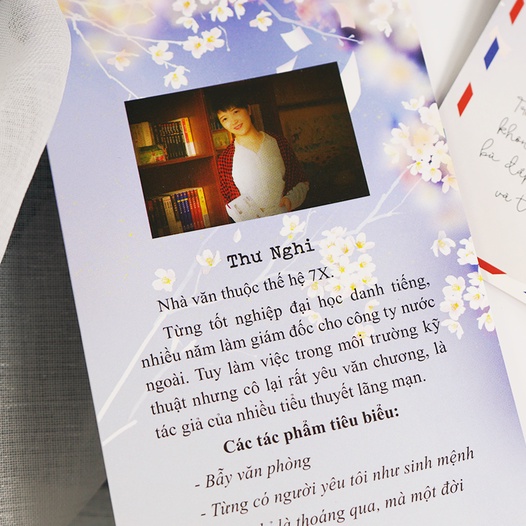 Thư Nghi
Nhà văn thuộc thế hệ 7X.
Từng tốt nghiệp đại học danh tiếng,
nhiều năm làm giám đốc cho công ty nước
ngoài. Tuy làm việc trong môi trường kỹ
thuật nhưng cô lại rất yêu văn chương, là
tác giả của nhiều tiểu thuyết lãng mạn.
Các tác phẩm tiêu biểu:
- Bẫy văn phòng
- Từng có người yêu tôi như sinh mệnh
là thoáng qua, mà một đời